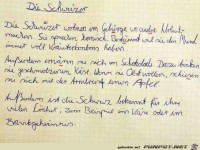 Die Schweizer
Die Schweizer wohnen im Gebirge wo andre Urlaub
machen. Sie sprechen komisch. Bestimmt weil sie den Mund
immer voll Kräuterbonbons haben
Außerdem ernähren sie sich von Schokolade. Dazu trinken
sie geschmolzenen Käse. Wenn sie Obst wollen, schießen
sie sich mit der Armbrust einen Apfel
Außerdem ist die Schweiz bekannt für ihre
vielen Löcher, zum Beispiel im Käse oder im
Bankgeheimnis